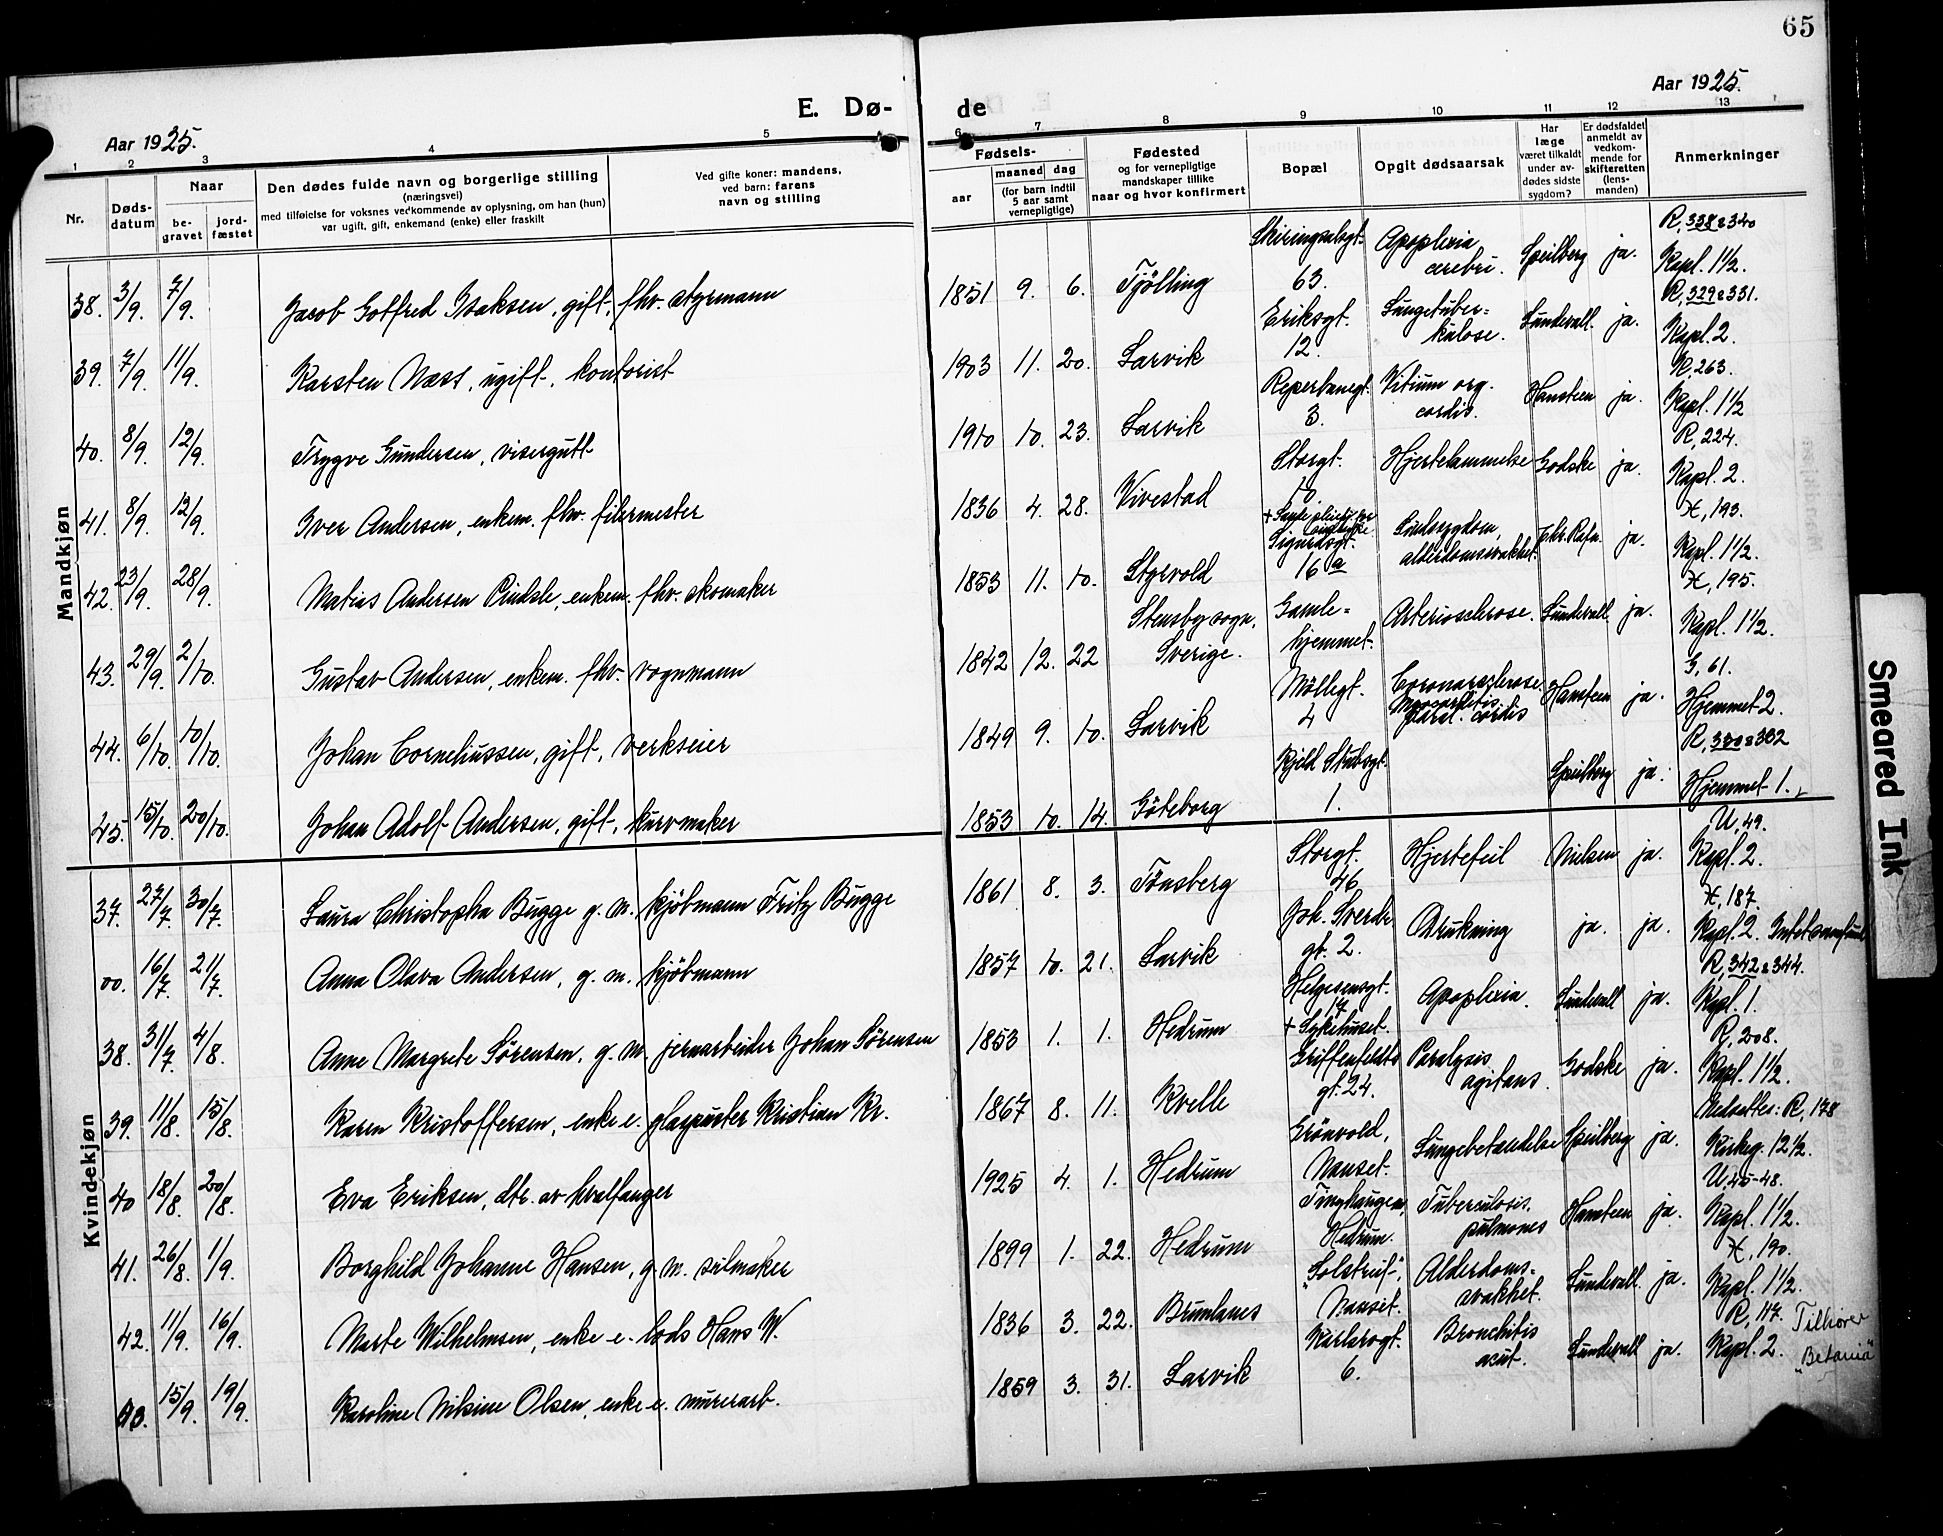 65
E. Dø-
de
Aar 1925.
Aar 1925.
1 2 3 4 5 6 7 8 9 10 11 12 13
Nr.
Døds-
datum
Naar
be-
gravet
jord-
fæstet
Den dødes fulde navn og borgerlige stilling
(næringsvei)
med tilføielse for voksnes vedkommende av oplysning, om han (hun)
var ugift, gift, enkemand (enke) eller fraskilt
Ved gifte koner: mandens,
ved barn: farens
navn og stilling
Fødsels-
aar
maaned dag
(for barn indtil
5 aar samt
vernepligtige)
Fødested
og for vernepligtige
mandskaper tillike
naar og hvor konfirmert
Bopæl
Opgit dødsaarsak
Har
læge
været tilkaldt
under av-
dødes sidste
sygdom?
Er dødsfaldet
anmeldt av
vedkom-
mende for
skifteretten
(lens-
manden)
Anmerkninger
Mandkjøn
38. 3/9. 7/9. Jacob Gotfred Isaksen, gift, fhv. styrmann 1851 9. 6. Tjölling Skiringsalsgt. 63. Apoplexia cerebri. Speilberg ja. R, 338 340 Kapl. 1½.
39. 7/9. 11/9. Karsten Næss, ugift, kontorist 1903 11. 20. Larvik Eriksgt. 12. Lungetuber-kulose. Sundevall ja. R, 329 331. Kapl. 2.
40. 8/9. 12/9. Trygve Gundersen, visergutt 1910 10. 23. Larvik Reperbanegt. 3. Vitium org. cordis. Hansteen ja. K. 263. Kapl. 1½
41. 8/9. 12/9. Iver Andersen, enkem. fhv. filermester 1836 4. 28. Vivestad Storgt. 10 Hjertelammelse Godske ja. R, 224. Kapl. 2.
42. 23/9. 28/9. Matias Andersen Pindsle, enkem. fhv. skomaker 1853 11. 10. Styrvold Sigurdsgt. 16 a Sindssygdom, alderdomssvakhet. ja. H, 193. Kapl. 1½.
43. 29/9. 2/10. Gustav Andersen, enkem. fhv. vognmann 1842 12. 22 Stensby sogn, Sverige. Gamle-hjemmet. Arteriosclerose. Sundevall ja. H, 195. Kapl. 1½.
44. 6/10. 10/10. Johan Corneliussen, gift, verkseier 1849 9. 10. Larvik Møllegt. 4 Coronarsclerose Myocarditis, paral. cordis Hansteen ja. G, 61. Hjemmet 2.
45. 15/10. 20/10. Johan Adolf Andersen, gift, kurvmaker 1853 10. 14. Göteborg Kjeld Stubsgt. 1. Speilberg ja. R, 332 Hjemmet 1.
Kvindekjøn
37. 27/7. 30/7. Laura Christopha Bugge g. m. kjöbmann Fritz Bugge 1861 8. 3. Tönsberg Storgt. 46 Hjertefeil Nielsen ja. U, 49. Kapl. 2.
00. 16/7. 21/7. Anna Olava Andersen, g. m. kjöbmann 1857 10. 21. Larvik Joh. Sverdr gt. 2. Drukning ja. ja. H, 187. Kapl. 2.
38. 31/7. 4/8. Anne Margrete Sørensen, g. m. jernarbeider Johan Sørensen 1853 1. 1. Hedrum Helgesensgt. 17 Apoplexia. Sundevall ja. R, 342 344. Kapl. 1.
39. 11/8. 15/8. Karen Kristoffersen, enke e. glaspuster Kristian Kr. 1867 8. 11. Kvelle + Sykehuset. Griffenfeldts gt. 24. Paralysis agitans. Godske ja. R, 208. Kapl. 1½.
40 18/8. 20/8. Eva Eriksen, dtr. av hvalfanger 1925 4. 1. Hedrum Grönvold, Nanset. Lungebetændelse Speilberg ja. Nedsettes: R, 178 Kirkeg. 12½.
41. 26/8. 1/9. Borghild Johanne Hansen, g. m. seilmaker 1899 1. 22. Hedrum Tinghaugen, Hedrum. Tuberculosis pulmones Hansteen ja. U 45-48. Kapl. 1½.
42. 11/9. 16/9. Marte Wilhelmsen, enke e. lods Hans W. 1836 3. 22. Brunlanes "Solstreif", Nanset. Alderdoms-svakhet. Sundevall ja. H, 190. Kapl. 1½.
43. 15/9. 19/9. Karoline Nilsine Olsen, enke e. murerarb. 1859 3. 31. Larvik Karlsrogt. 6. Bronchitis acut. Sundevall ja. R, 117. Kapl. 2. Tilhører "Betania"
Smeared Ink